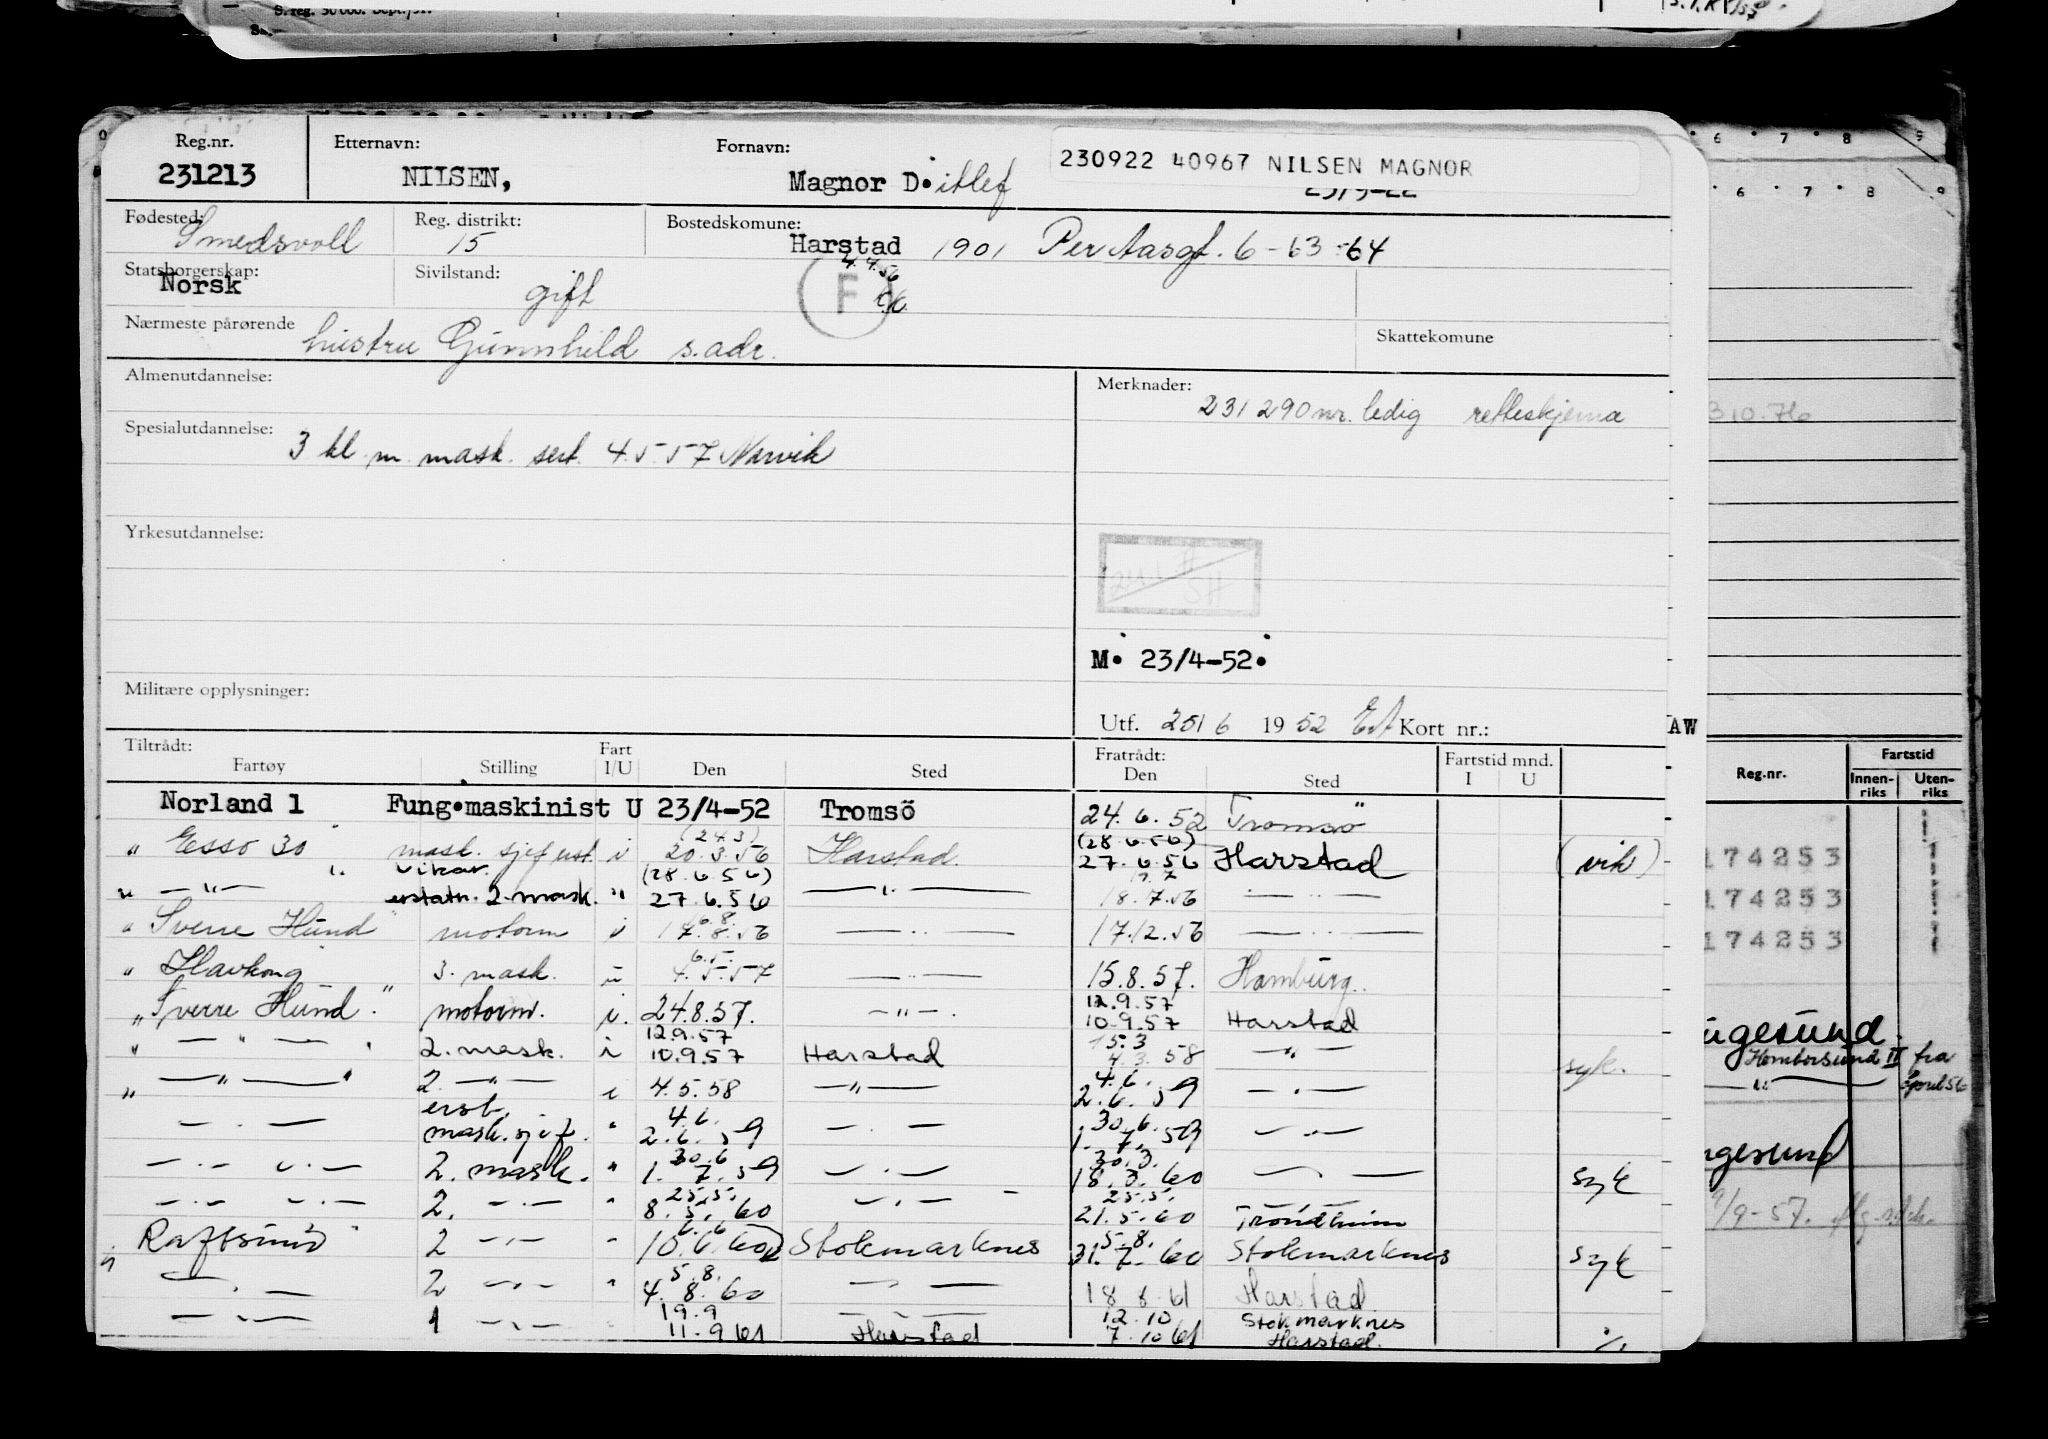 S. reg. 30 000. Sept./51.
Reg.nr. Etternavn: Fornavn: 230922 40967 NILSEN MAGNOR
231213 NILSEN, Magnor D. itlef 23/9-22
Fødested: Smedsvoll Reg. distrikt: 15 Bostedskomune: Harstad 1901 Per Aasgt. 6 - 63 - 64
Statsborgerskap: Norsk Sivilstand: gift F 4.4.56
Nærmeste pårørende hustru Gunnhild s. adr. Skattekomune
Almenutdannelse: Merknader: 231290 nr. ledig retteskjema
Spesialutdannelse: 3 kl. m. mask. sert. 4.5.57 Narvik
Yrkesutdannelse:
M. 23/4-52.
Militære opplysninger:
Utf. 25/6 1952 Kort nr.: AW
Tiltrådt: Fart Fratrådt: Fartstid mnd.
Fartøy Stilling I/U Den Sted Den Sted I U
Norland 1 Fung.maskinist U 23/4-52 Tromsö 24.6.52 Tromsö
(24.3) (28.6.56)
" Esso 30 " mask. sjef erst. i 20.3.56 Harstad 27.6.56 Harstad (vik)
vikar. (28.6.56)
" — " — erstatn. 2. mask. " 27.6.56 — " — 18.7.56 — " —
" Sverre Hund " motorm i 17.8.56 — " — 17.12.56 — " —
6.5.
" Havkong 3. mask. u 4.5.57 — " — 15.8.57. Hamburg.
12.9.57
" Sverre Hund " motorm. i. 24.8.57. — " — 10.9.57 Harstad
12.9.57 15.3
" — " — 2. mask. i 10.9.57 Harstad 4.3.58 — " — syk.
4.6.
" — " — 2. — " — i 4.5.58 — " — 2.6.59 — " —
erst. 4.6. 30.6.
— " — mask. sjef. " 2.6.59 — " — 1.7.59 — " —
30.6 30.3.
— " — 2. mask. " 1.7.59 — " — 18.3.60 — " — syk
25.5. 25.5.
— " — 2. — " — " 8.5.60 — " — 21.5.60 Trondheim
6.6 5.8.
" Raftsund " 2 — " — " 10.6.60 Stokmarknes 31.7.60 Stokmarknes syk
5.8.
— " — 2 — " — " 4.8.60 — " — 18 8.61 Harstad
19.9 12.10 Stokmarknes
— " — 1 — " — 11.9 61 Harstad 7.10 61 Harstad.
6 7 8 9
6 7 8 9
310.76
Fartstid
Reg.nr. Innenriks Utenriks
174253
174253
174253
ugesund.
Homborsund II fra
April 56
ngesund
9/9-57.